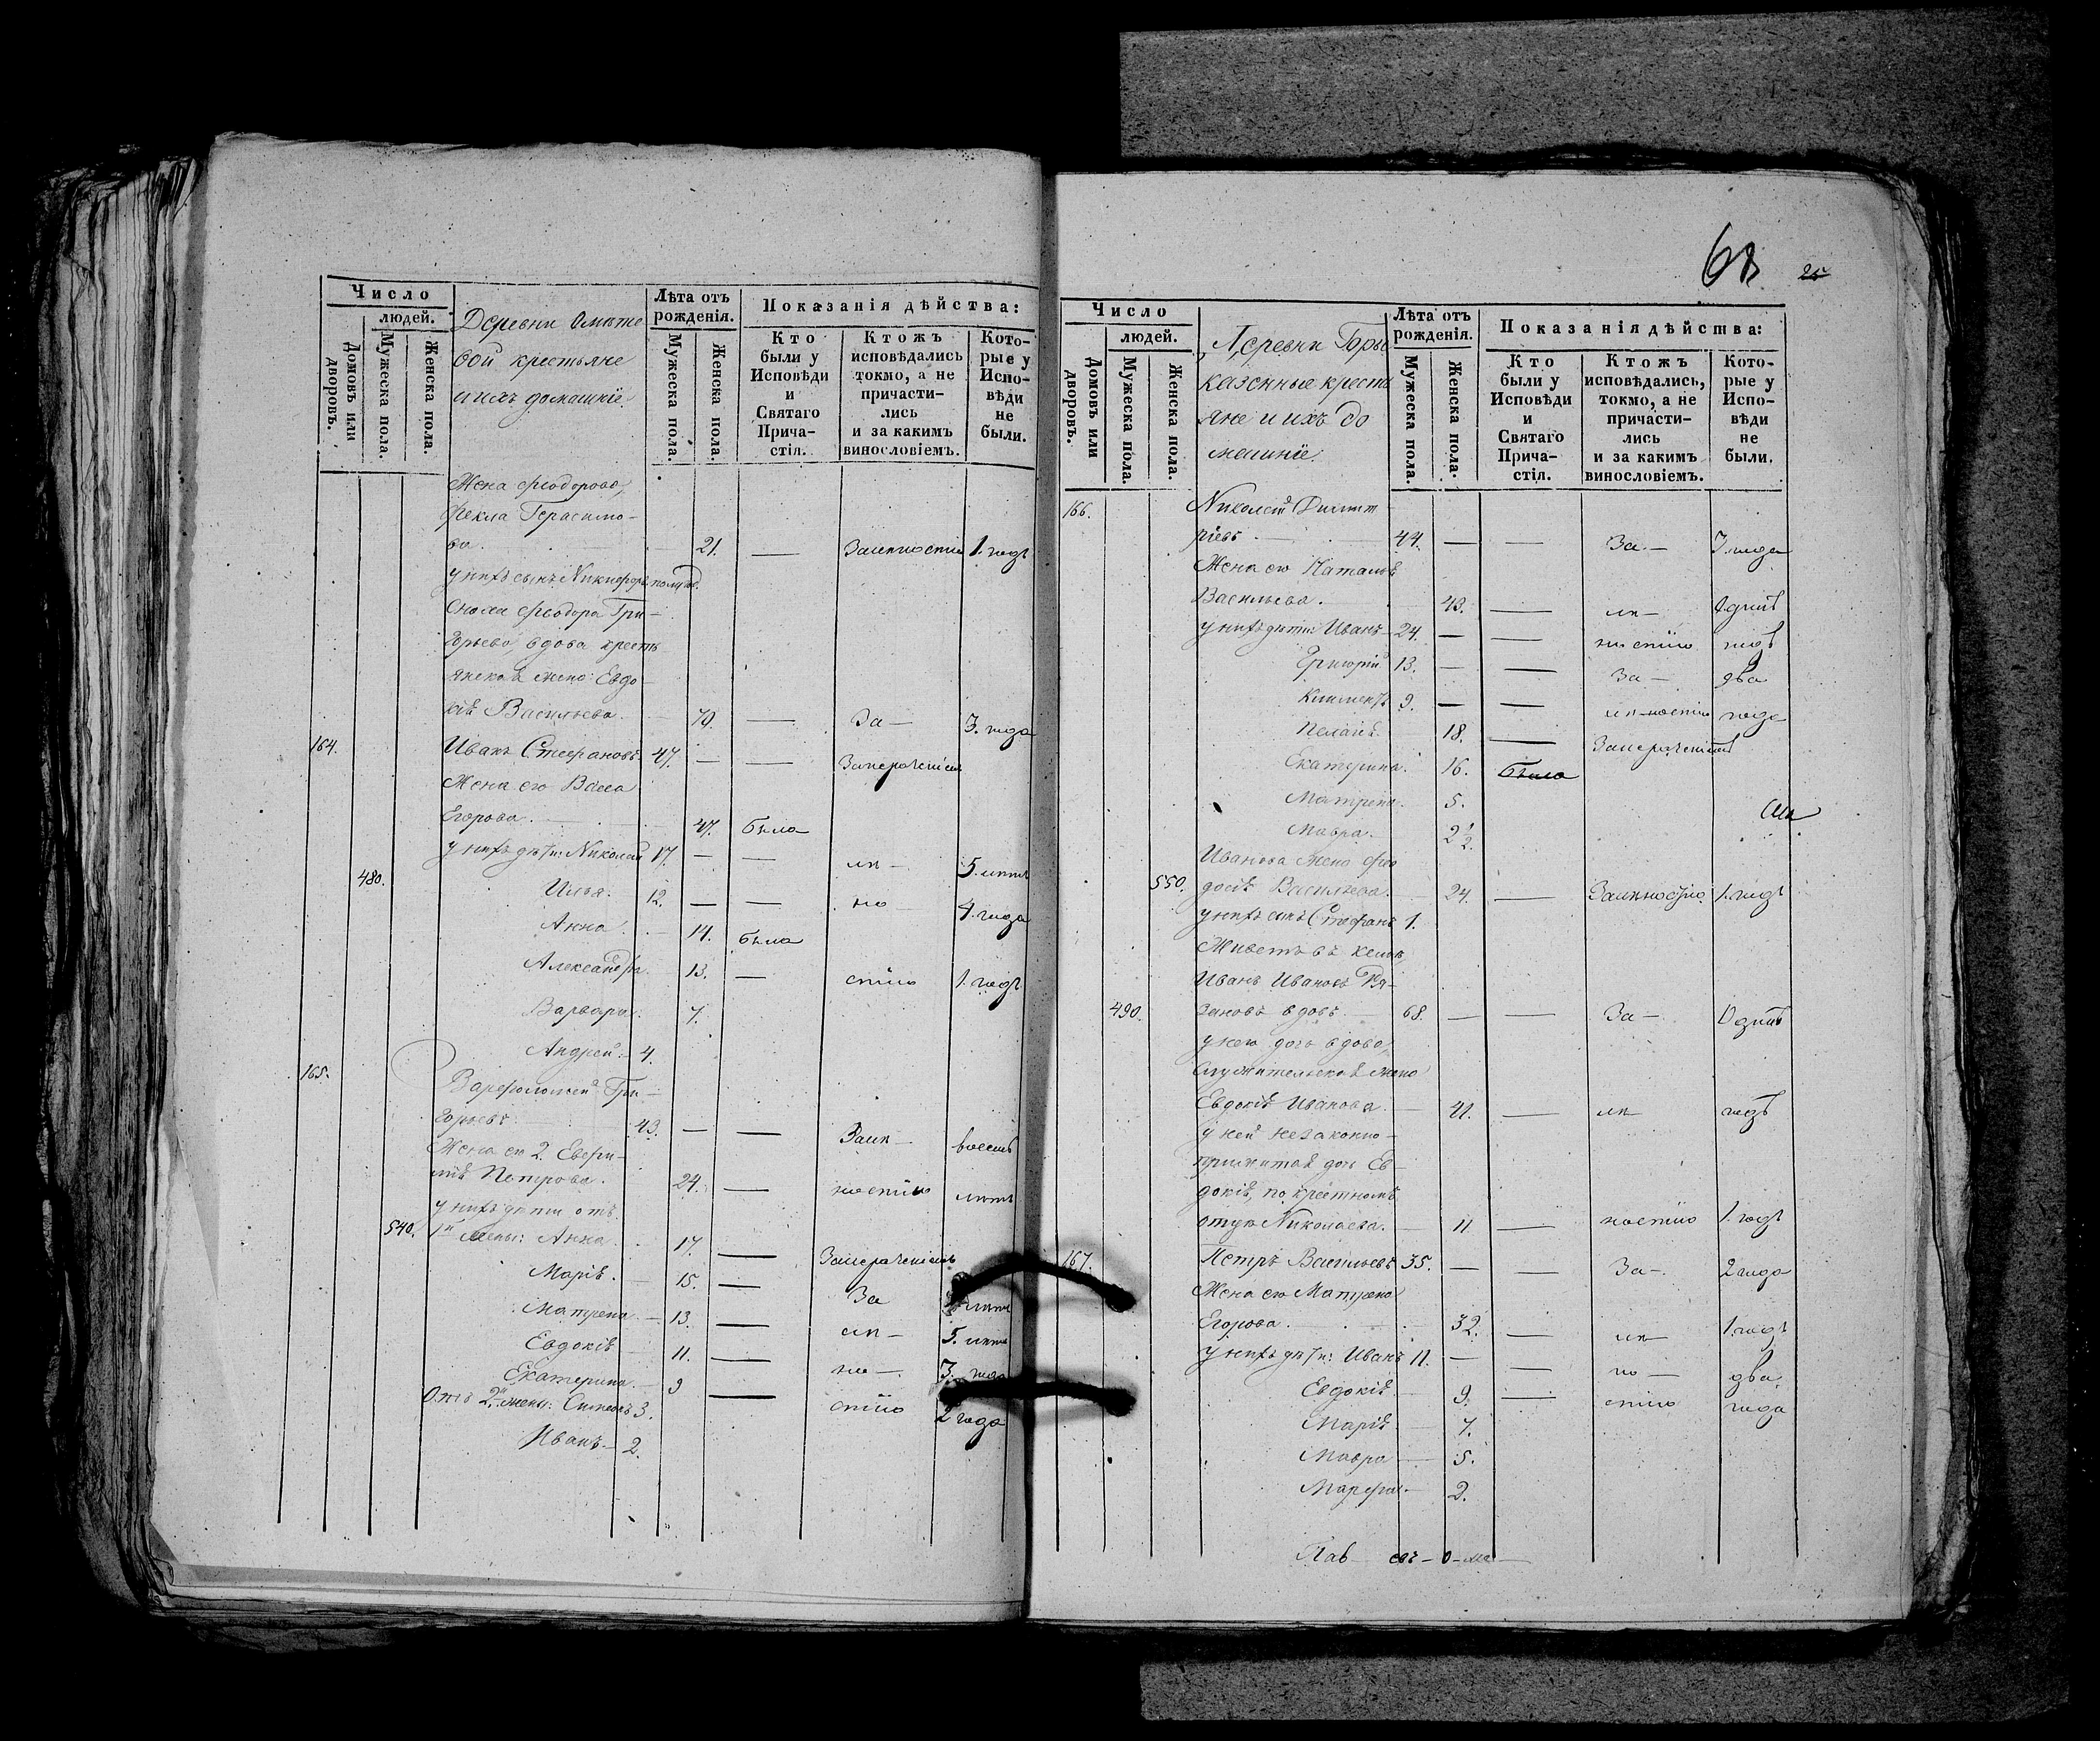 Число
людей.
Домовъ или дворовъ.
Мужеска пола.
Женска пола.
Деревни
вой крестьяне
и ихъ домашніе.
Лѣта отъ рожденія.
Мужеска пола.
Женска пола.
Показанія дѣйства:
Кто были у Исповѣди и Святаго Причастія.
Ктожъ исповѣдались токмо, а не причастились и за какимъ винословіемъ.
Которые у Исповѣди не были.
Жена Ѳеодорова,
Ѳекла Герасимо-
ва. 21. — 1. годъ
у нихъ сынъ Никифоръ полугод.
Сноха Ѳеодора Гри-
горьева, вдова кресть
янская жена Евдо-
кія Васильева. 70. — За — 3. года
164. Иванъ Стефановъ. 47. — — За пераченіемъ
Жена его Васса
Егорова. 47. была
у нихъ дѣти: Николай 17. — — лѣ — 5. лѣтъ
480. Илья. 12. — — но — 4. года
Анна. 14. была
Александра. 13. — стію 1. годъ
Варвара. 7.
Андрей. 4.
165. Варѳоломей Гри-
горьевъ. 43. — — За лѣ — восемь
Жена его 2. Евѳи-
мія Петрова. 24. — ностію лѣтъ
у нихъ дѣти отъ
540. 1й жены: Анна. 17. — За пераченіемъ
Марія. 15. — За лѣтъ
Матрена. 13. — лѣ — 5. лѣтъ
Евдокія 11. — но — 3. года
Екатерина. 9 — стію 2 года
Отъ 2й жены: Симеонъ 3.
Иванъ — 2.
68 25
Число
людей.
Домовъ или дворовъ.
Мужеска пола.
Женска пола.
Деревни Горы
казенные кресть
яне и ихъ до
машніе.
Лѣта отъ рожденія.
Мужеска пола.
Женска пола.
Показанія дѣйства:
Кто были у Исповѣди и Святаго Причастія.
Ктожъ исповѣдались, токмо, а не причастились и за какимъ винословіемъ.
Которые у Исповѣди не были.
166. Николай Димит
ріевъ. 44. — — За — 3. года
Жена его Наталья
Васильева. 43. — лѣ — Одинъ
у нихъ дѣти: Иванъ 24. — — ностію годъ
Григорій 13. — — За — два
Климентъ 9. — — лѣностію года
Пелагія 18. — За пераченіемъ
Екатерина. 16. была
Матрена. 5.
Мавра. 2½.
Иванова жена Ѳео
550. досія Васильева. 24. — За лѣностію 1. годъ
у нихъ сынъ Стефанъ 1.
Живетъ въ кельѣ,
Иванъ Ивановъ
490. вдовъ. 68. — — За — Одинъ
у него дочь вдова,
Служительская жена
Евдокія Иванова. 41. — лѣ годъ
у ней незаконно-
прижитая дочь Ев-
докія, по крестному
отцу Николаева. 11 — ностію 1. годъ
167. Петръ Васильевъ 35. — — За — 2 года
Жена его Матрена
Егорова. 32. — лѣ — 1. годъ
у нихъ дѣти: Иванъ 11. — — но — два
Евдокія 9. — стію года
Марія 7.
Мавра 5.
Марѳа 2.